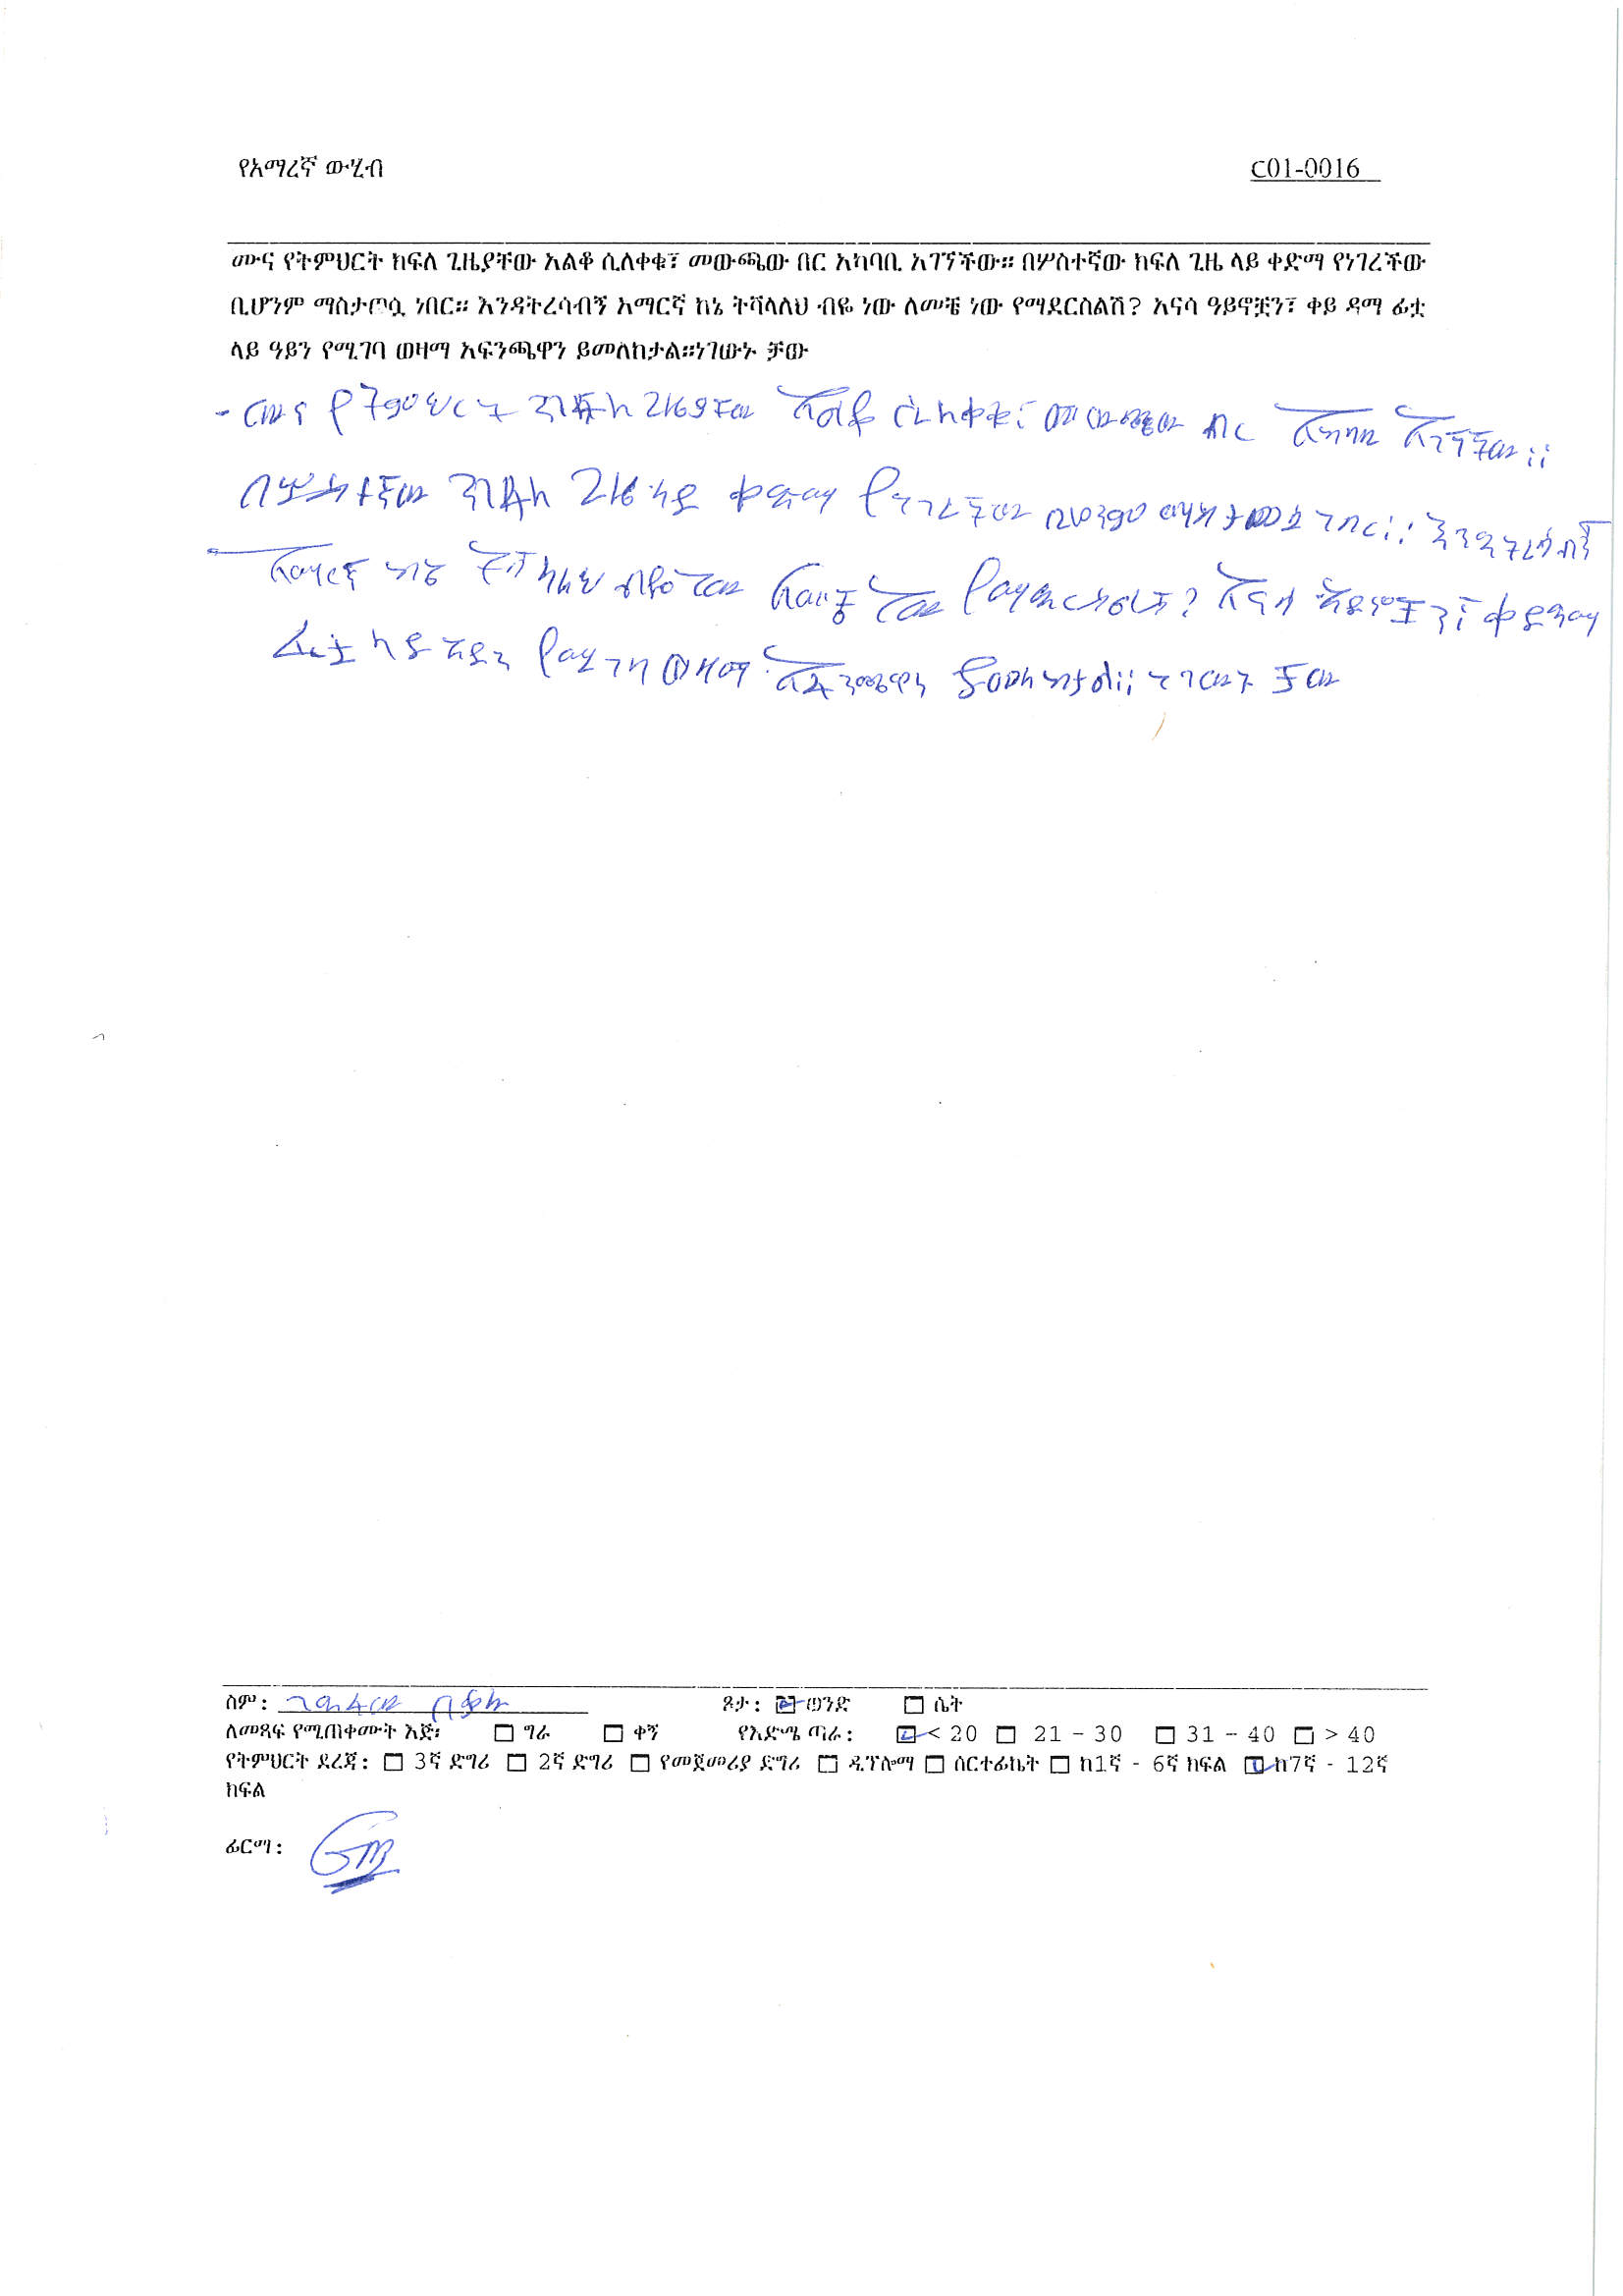 የአማረኛ ውሂብ
C01-0016
ሙና የትምህርት ክፍለ ጊዜያቸው አልቆ ሲለቀቁ፣ መውጫው በር አካባቢ አገኘችው። በሦስተኛው ክፍለ ጊዜ ላይ ቀድማ የነገረችው
ቢሆንም ማስታጦሷ ነበር። እንዳትረሳብኝ አማርኛ ከኔ ትሻላለህ ብዬ ነው ለመቼ ነው የማደርስልሽ? አናሳ ዓይኖቿን፣ ቀይ ዳማ ፊቷ
ላይ ዓይን የሚገባ ወዛማ አፍንጫዋን ይመለከታል።ነገውኑ ቻው
- ሙና የትምህርት ክፍለ ጊዜያቸው አልቆ ሲለቀቁ፣ መውጫው በር አካባቢ አገኘችው።
በሦስተኛው ክፍለ ጊዜ ላይ ቀድማ የነገረችው ቢሆንም ማስታጦሷ ነበር። እንዳትረሳብኝ
አማርኛ ከኔ ትሻላለህ ብዬ ነው ለመቼ ነው የማደርስልሽ? አናሳ ዓይኖቿን፣ ቀይ ዳማ
ፊቷ ላይ ዓይን የሚገባ ወዛማ አፍንጫዋን ይመለከታል። ነገውኑ ቻው
ስም: በቀለ ጾታ: ወንድ ሴት
ለመጻፍ የሚጠቀሙት እጅ፡ ግራ ቀኝ የእድሜ ጣራ: < 20 21 - 30 31 - 40 > 40
የትምህርት ደረጃ: 3ኛ ድግሪ 2ኛ ድግሪ የመጀመሪያ ድግሪ ዲፕሎማ ሰርተፊኬት ከ1ኛ - 6ኛ ክፍል ከ7ኛ - 12ኛ
ክፍል
ፊርማ: